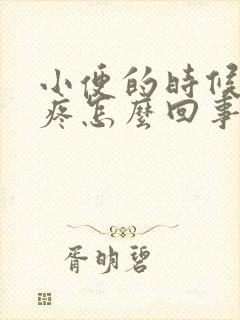 小便的時候
疼怎麼回事
胥明碧